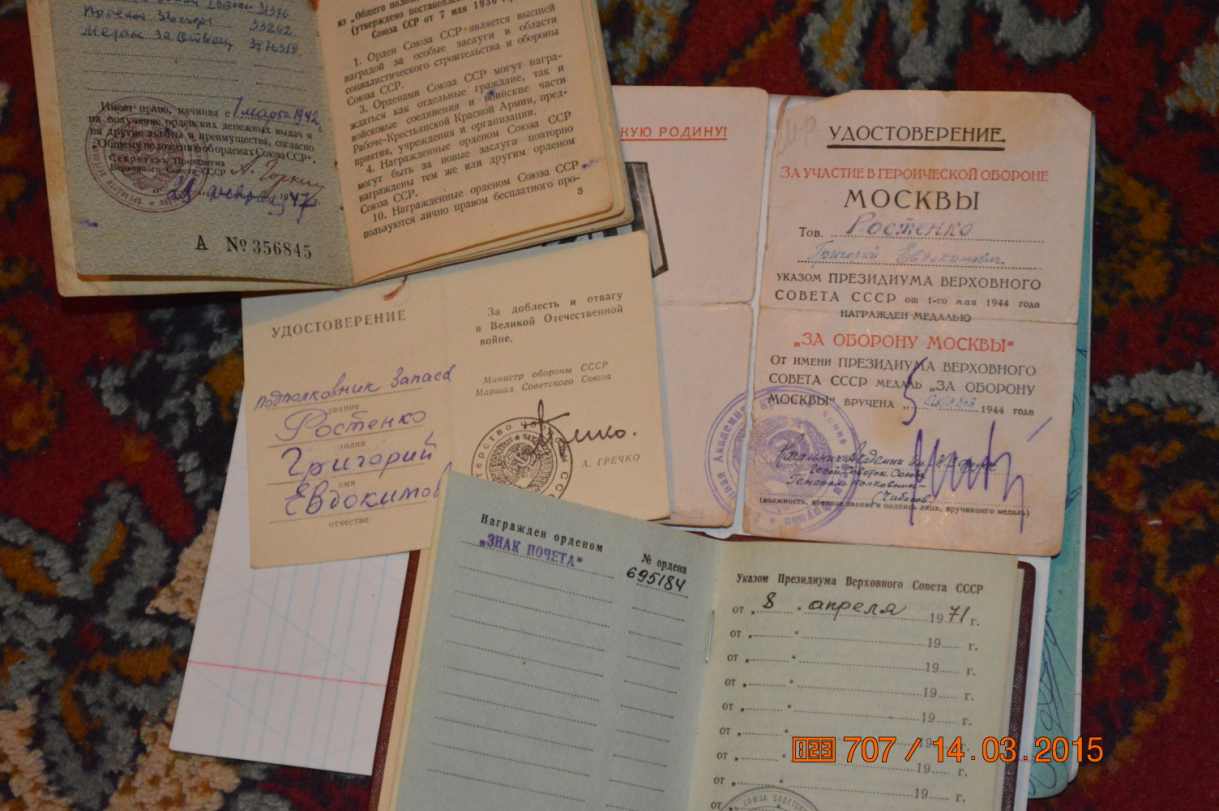 53262
Медаль За Отвагу
Имеет право, начиная с 1 марта 1942
на получение орденских денежных выдач и
на другие льготы и преимущества, согласно
"Общему положению об орденах Союза ССР".
Секретарь Президиума
Верховного Совета СССР А. Горкин
февраля 1947
А № 356845
из „Общего
(утверждено
Союза ССР от 7 мая 1936
1. Орден Союза ССР является высшей
наградой за особые заслуги в области
социалистического строительства и обороны
Союза ССР.
3. Орденами Союза ССР могут награ-
ждаться как отдельные граждане, так и
войсковые соединения и воинские части
Рабоче-Крестьянской Красной Армии, пред-
приятия, учреждения и организации.
4. Награжденные орденом Союза ССР
могут быть за новые заслуги повторно
награждены тем же или другим орденом
Союза ССР.
10. Награжденные орденом Союза ССР
пользуются лично правом бесплатного про-
3
КУЮ РОДИНУ!
УДОСТОВЕРЕНИЕ
ЗА УЧАСТИЕ В ГЕРОИЧЕСКОЙ ОБОРОНЕ
МОСКВЫ
Тов. Ростенко
Григорий Евдокимович
УКАЗОМ ПРЕЗИДИУМА ВЕРХОВНОГО
СОВЕТА СССР от 1-го мая 1944 года
НАГРАЖДЕН МЕДАЛЬЮ
„ЗА ОБОРОНУ МОСКВЫ"
ОТ ИМЕНИ ПРЕЗИДИУМА ВЕРХОВНОГО
СОВЕТА СССР МЕДАЛЬ „ЗА ОБОРОНУ
МОСКВЫ" ВРУЧЕНА „5 1944 года
Генерал-полковник
(Чибисов)
(должность, военное звание и подпись лица, вручившего медаль)
УДОСТОВЕРЕНИЕ
подполковник запаса
звание
Ростенко
Григорий
имя
Евдокимов
отчество
За доблесть и отвагу
в Великой Отечественной
войне.
Министр обороны СССР
Маршал Советского Союза
А. ГРЕЧКО
Награжден орденом
„ЗНАК ПОЧЕТА"
№ ордена
695184
Указом Президиума Верховного Совета СССР
от „8" апреля 1971 г.
от „ " 19 г.
от „ " 19 г.
от „ " 19 г.
от „ " 19 г.
от „ " 19 г.
от „ " 19 г.
от
707 / 14.03.2015